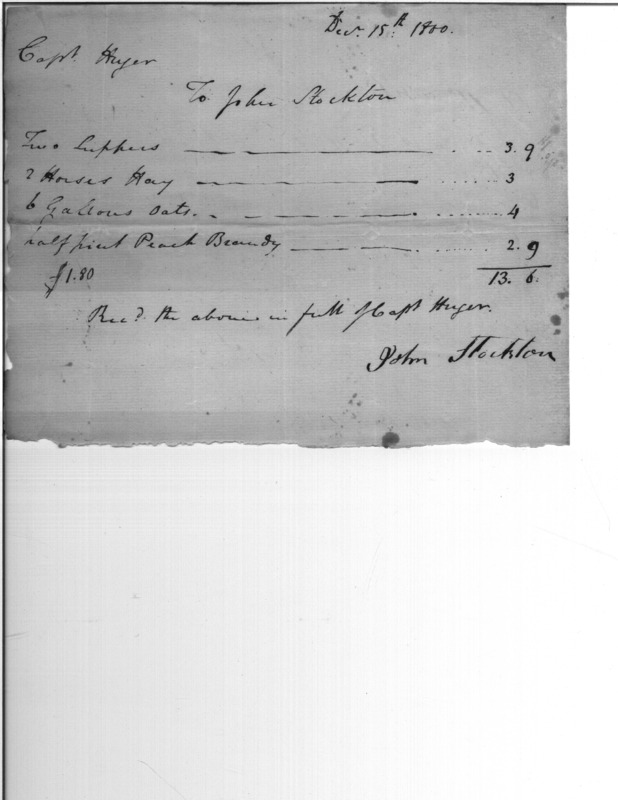 Decr. 15th. 1800.
Capt Huger
To John Stockton
Two Suppers 3. 9
2 Horses Hay 3
6 Gallons Oats. 4
half pint Peach Brandy 2. 9
$1.80 13. 6.
Recd. the above in full of Capt Huger.
John Stockton